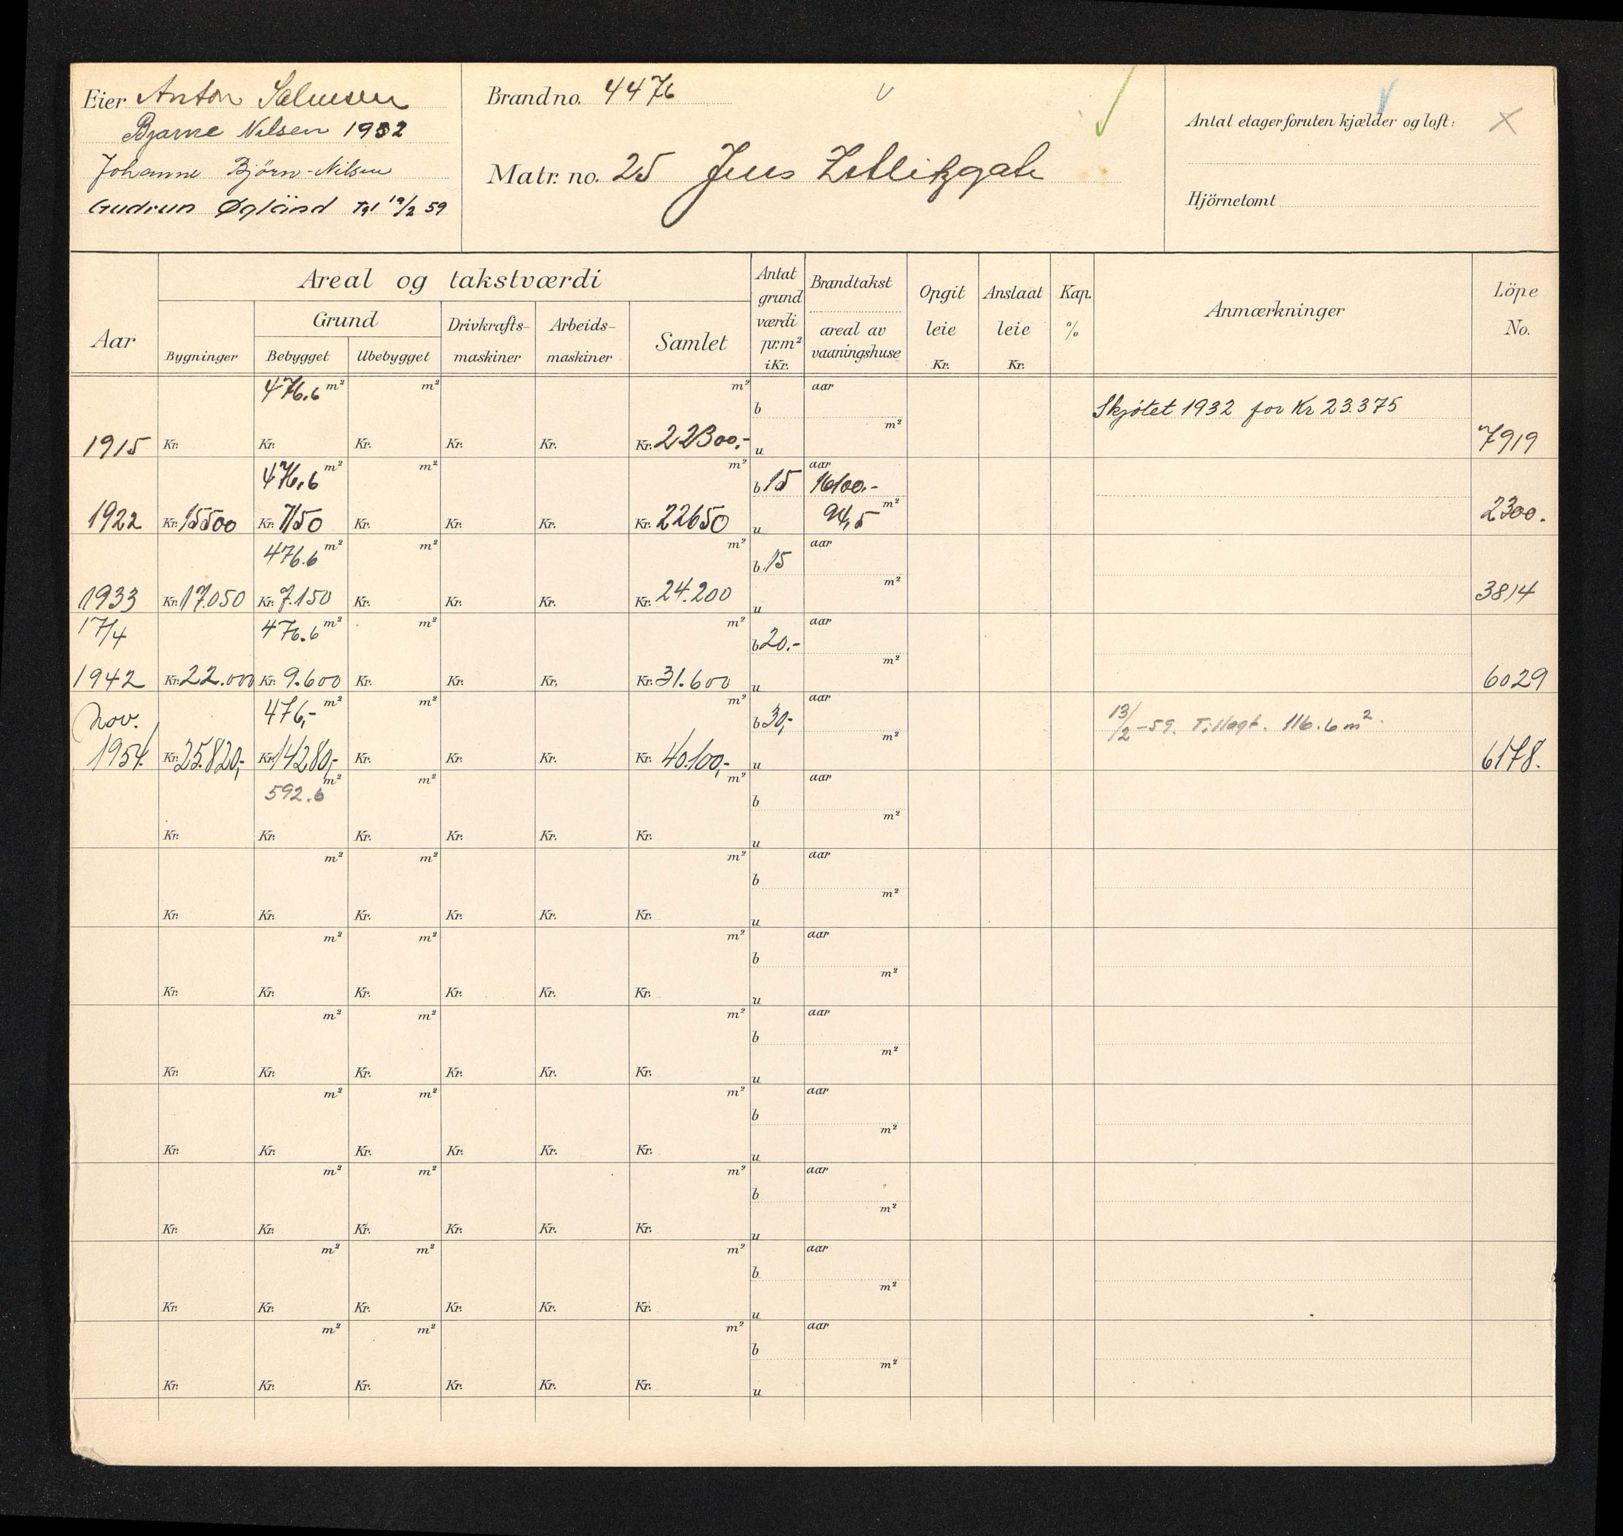 Eier Anton Salmsen
Bjarne Nilsen 1932
Johanne Bjørn-Nilsen
Gudrun Øgländ Tgl 19/2 59
Brandno. 4476
Matr. no. 25 Jens Zetlitzgate
Antal etager foruten kjælder og loft:
Hjörnetomt
Aar
Areal og takstværdi
Grund
Bygninger
Bebygget
Ubebygget
Drivkrafts-maskiner
Arbeids-maskiner
Samlet
Antat grund værdi pr.m² i Kr.
Brandtakst
areal av vaaningshuse
Opgit leie Kr.
Anslaat leie Kr.
Kap. %
Anmærkninger
Löpe No.
476.6 m² m² m² aar
b m² Skjøtet 1932 for Kr 23.375
1915 Kr. Kr. Kr. Kr. Kr. Kr. 22300,- u 7919
476,6 m² m² m² b 15 aar 16100.-
1922 Kr. 15500 Kr. 7150 Kr. Kr. Kr. Kr. 22650 u 94,5 m² 2300.
476.6 m² m² m² b 15 aar
1933 Kr. 17.050 Kr. 7.150 Kr. Kr. Kr. Kr. 24.200 u m² 3814
17/4 476.6 m² m² m² b 20.- aar
1942 Kr. 22.000 Kr. 9.600 Kr. Kr. Kr. Kr. 31.600 u m² 6029
Nov. 476,- m² m² m² b 30,- aar 13/2-59. Tillagt. 116.6 m².
1954. Kr. 25.820,- Kr. 14280,- Kr. Kr. Kr. Kr. 40.100,- u m² 6178.
592.6 m² m² m² b aar
Kr. Kr. Kr. Kr. Kr. Kr. u m²
m² m² m² b aar
Kr. Kr. Kr. Kr. Kr. Kr. u m²
m² m² m² b aar
Kr. Kr. Kr. Kr. Kr. Kr. u m²
m² m² m² b aar
Kr. Kr. Kr. Kr. Kr. Kr. u m²
m² m² m² b aar
Kr. Kr. Kr. Kr. Kr. Kr. u m²
m² m² m² b aar
Kr. Kr. Kr. Kr. Kr. Kr. u m²
m² m² m² b aar
Kr. Kr. Kr. Kr. Kr. Kr. u m²
m² m² m² b aar
Kr. Kr. Kr. Kr. Kr. Kr. u m²